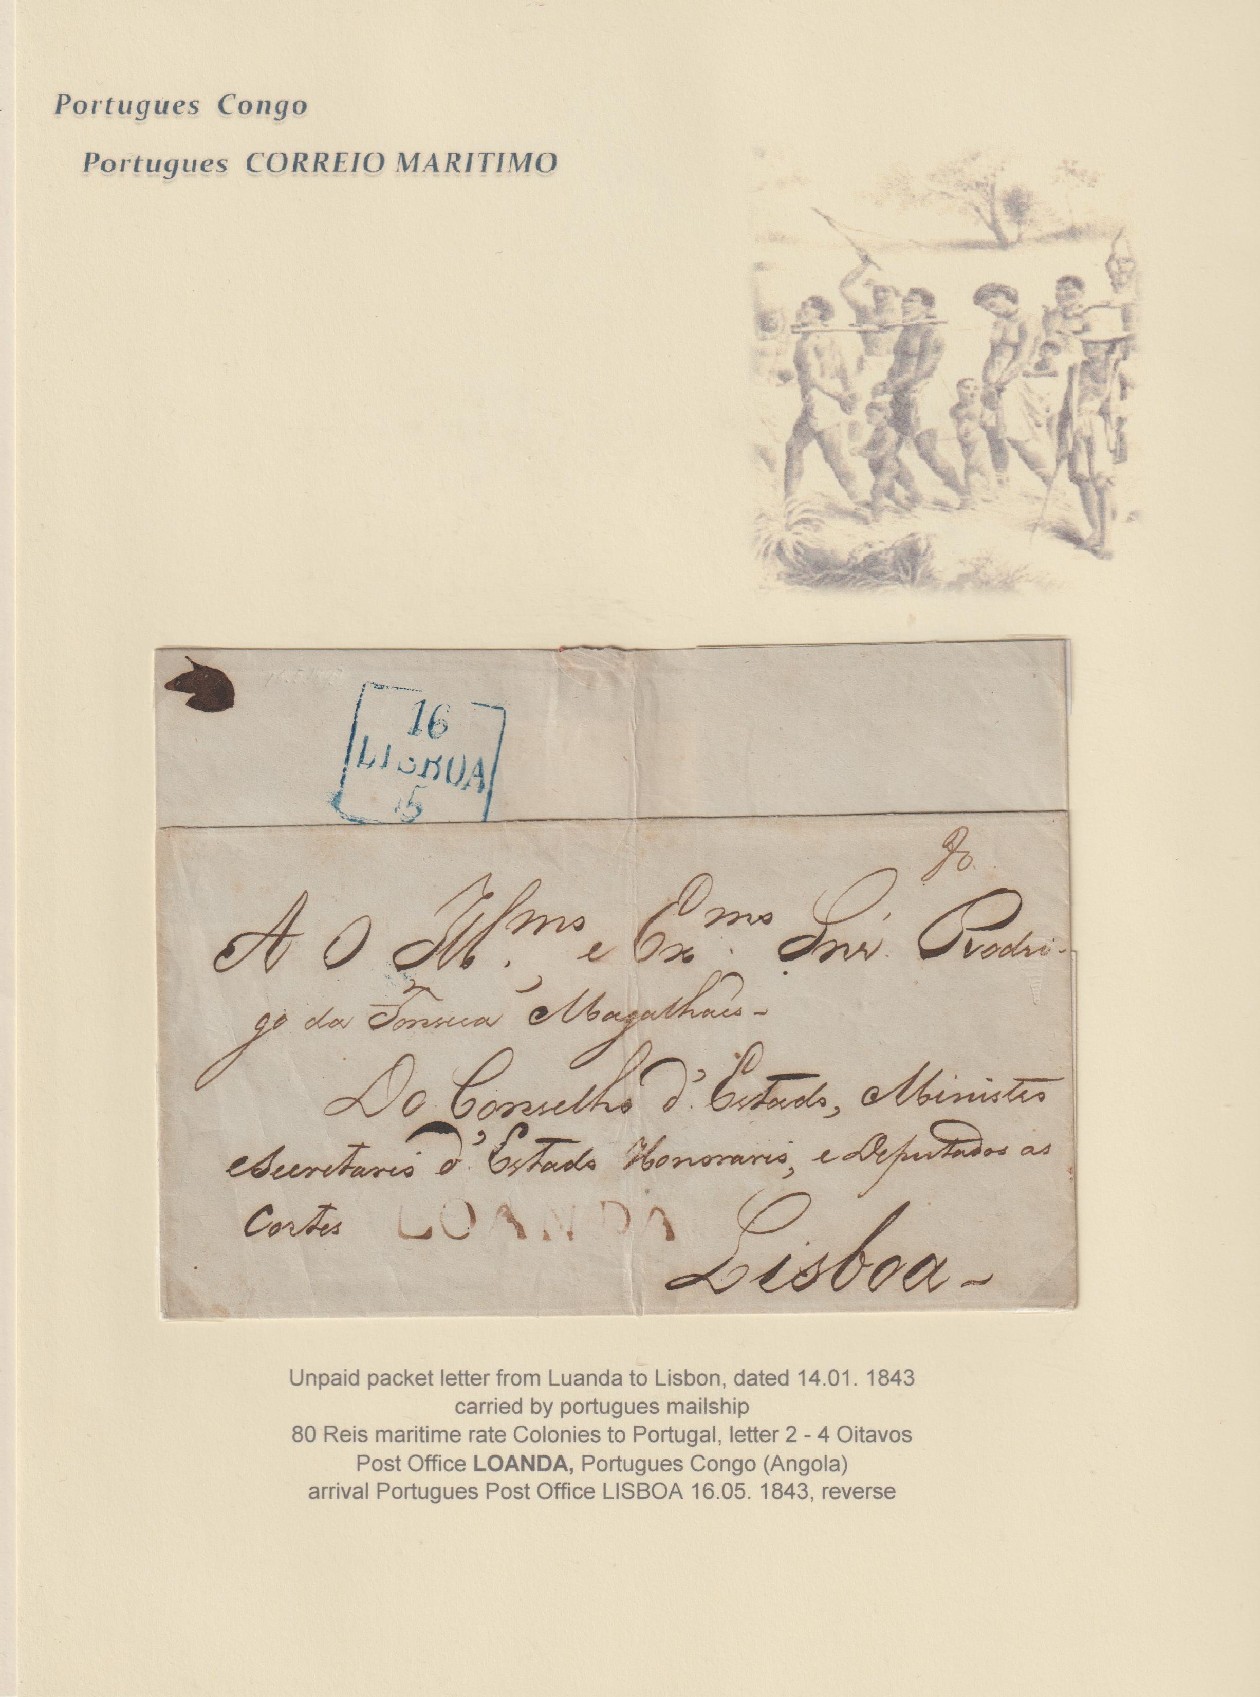 Portugues Congo
Portugues CORREIO MARITIMO
16
LISBOA
5
A O Illmo. e Exmo. Snr. Rodri-
go da Fonseca Magalhães-
Do Conselho d'Estado, Ministro
e Secretario d'Estado Honorario, e Deputado as
Cortes
LOANDA
Lisboa-
Unpaid packet letter from Luanda to Lisbon, dated 14.01. 1843
carried by portugues mailship
80 Reis maritime rate Colonies to Portugal, letter 2 - 4 Oitavos
Post Office LOANDA, Portugues Congo (Angola)
arrival Portugues Post Office LISBOA 16.05. 1843, reverse